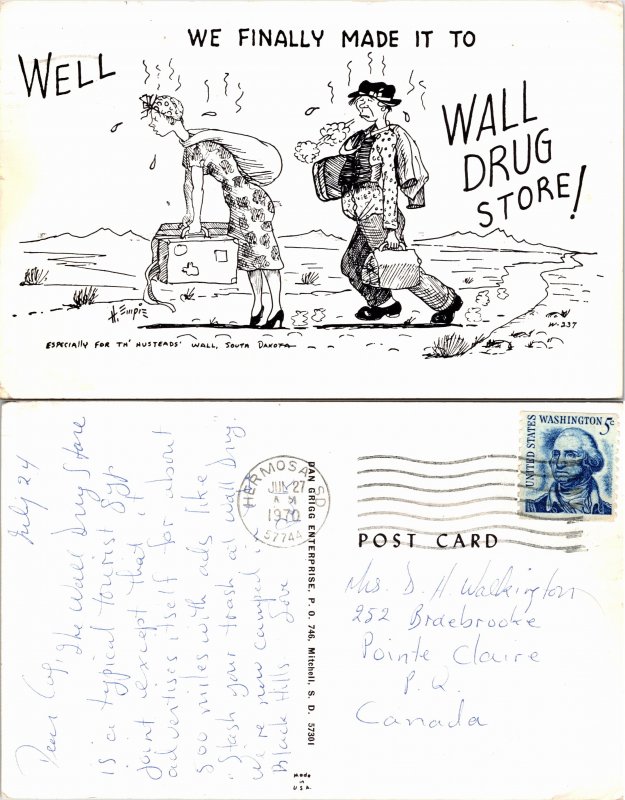 WELL
WE FINALLY MADE IT TO
WALL
DRUG
STORE!
H. EMPIE
W-237
ESPECIALLY FOR TH' HUSTEADS' WALL, SOUTH DAKOTA
July 24
Dear
The Wall Drug Store
is a typical tourist gyp
joint except that it
advertises itself for about
500 miles with ads like
"Stash your trash at Wall Drug."
We're now camped in
Black Hills Love
HERMOSA, SD
JUL 27
1970
57744
DAN GRIGG ENTERPRISE, P. O. 746, Mitchell, S. D. 57301
MADE
IN
U.S.A.
UNITED STATES WASHINGTON 5c
POST CARD
Mrs. D. H. Walkington
252 Braebrooke
Pointe Claire
P.Q.
Canada